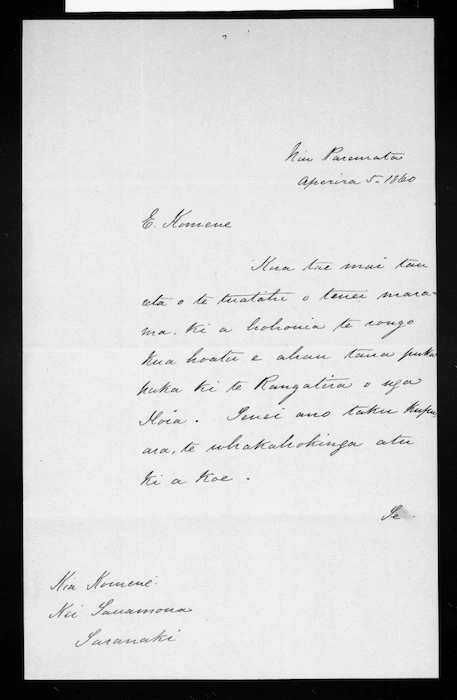 Niu Paremata
Aperira 5. 1860
E. Komene
Kua tae mai tau
reta o te tuatahi o tenei mara-
ma. Ki a hohoria te rongo
Kua hoatu e ahau tana puka
puka ki te Rangatira o nga
Hoia. Tenei ano taku kupu,
ara, te whakahokinga atu
ki a koe.
Kia Komene.
Kei
Taranaki